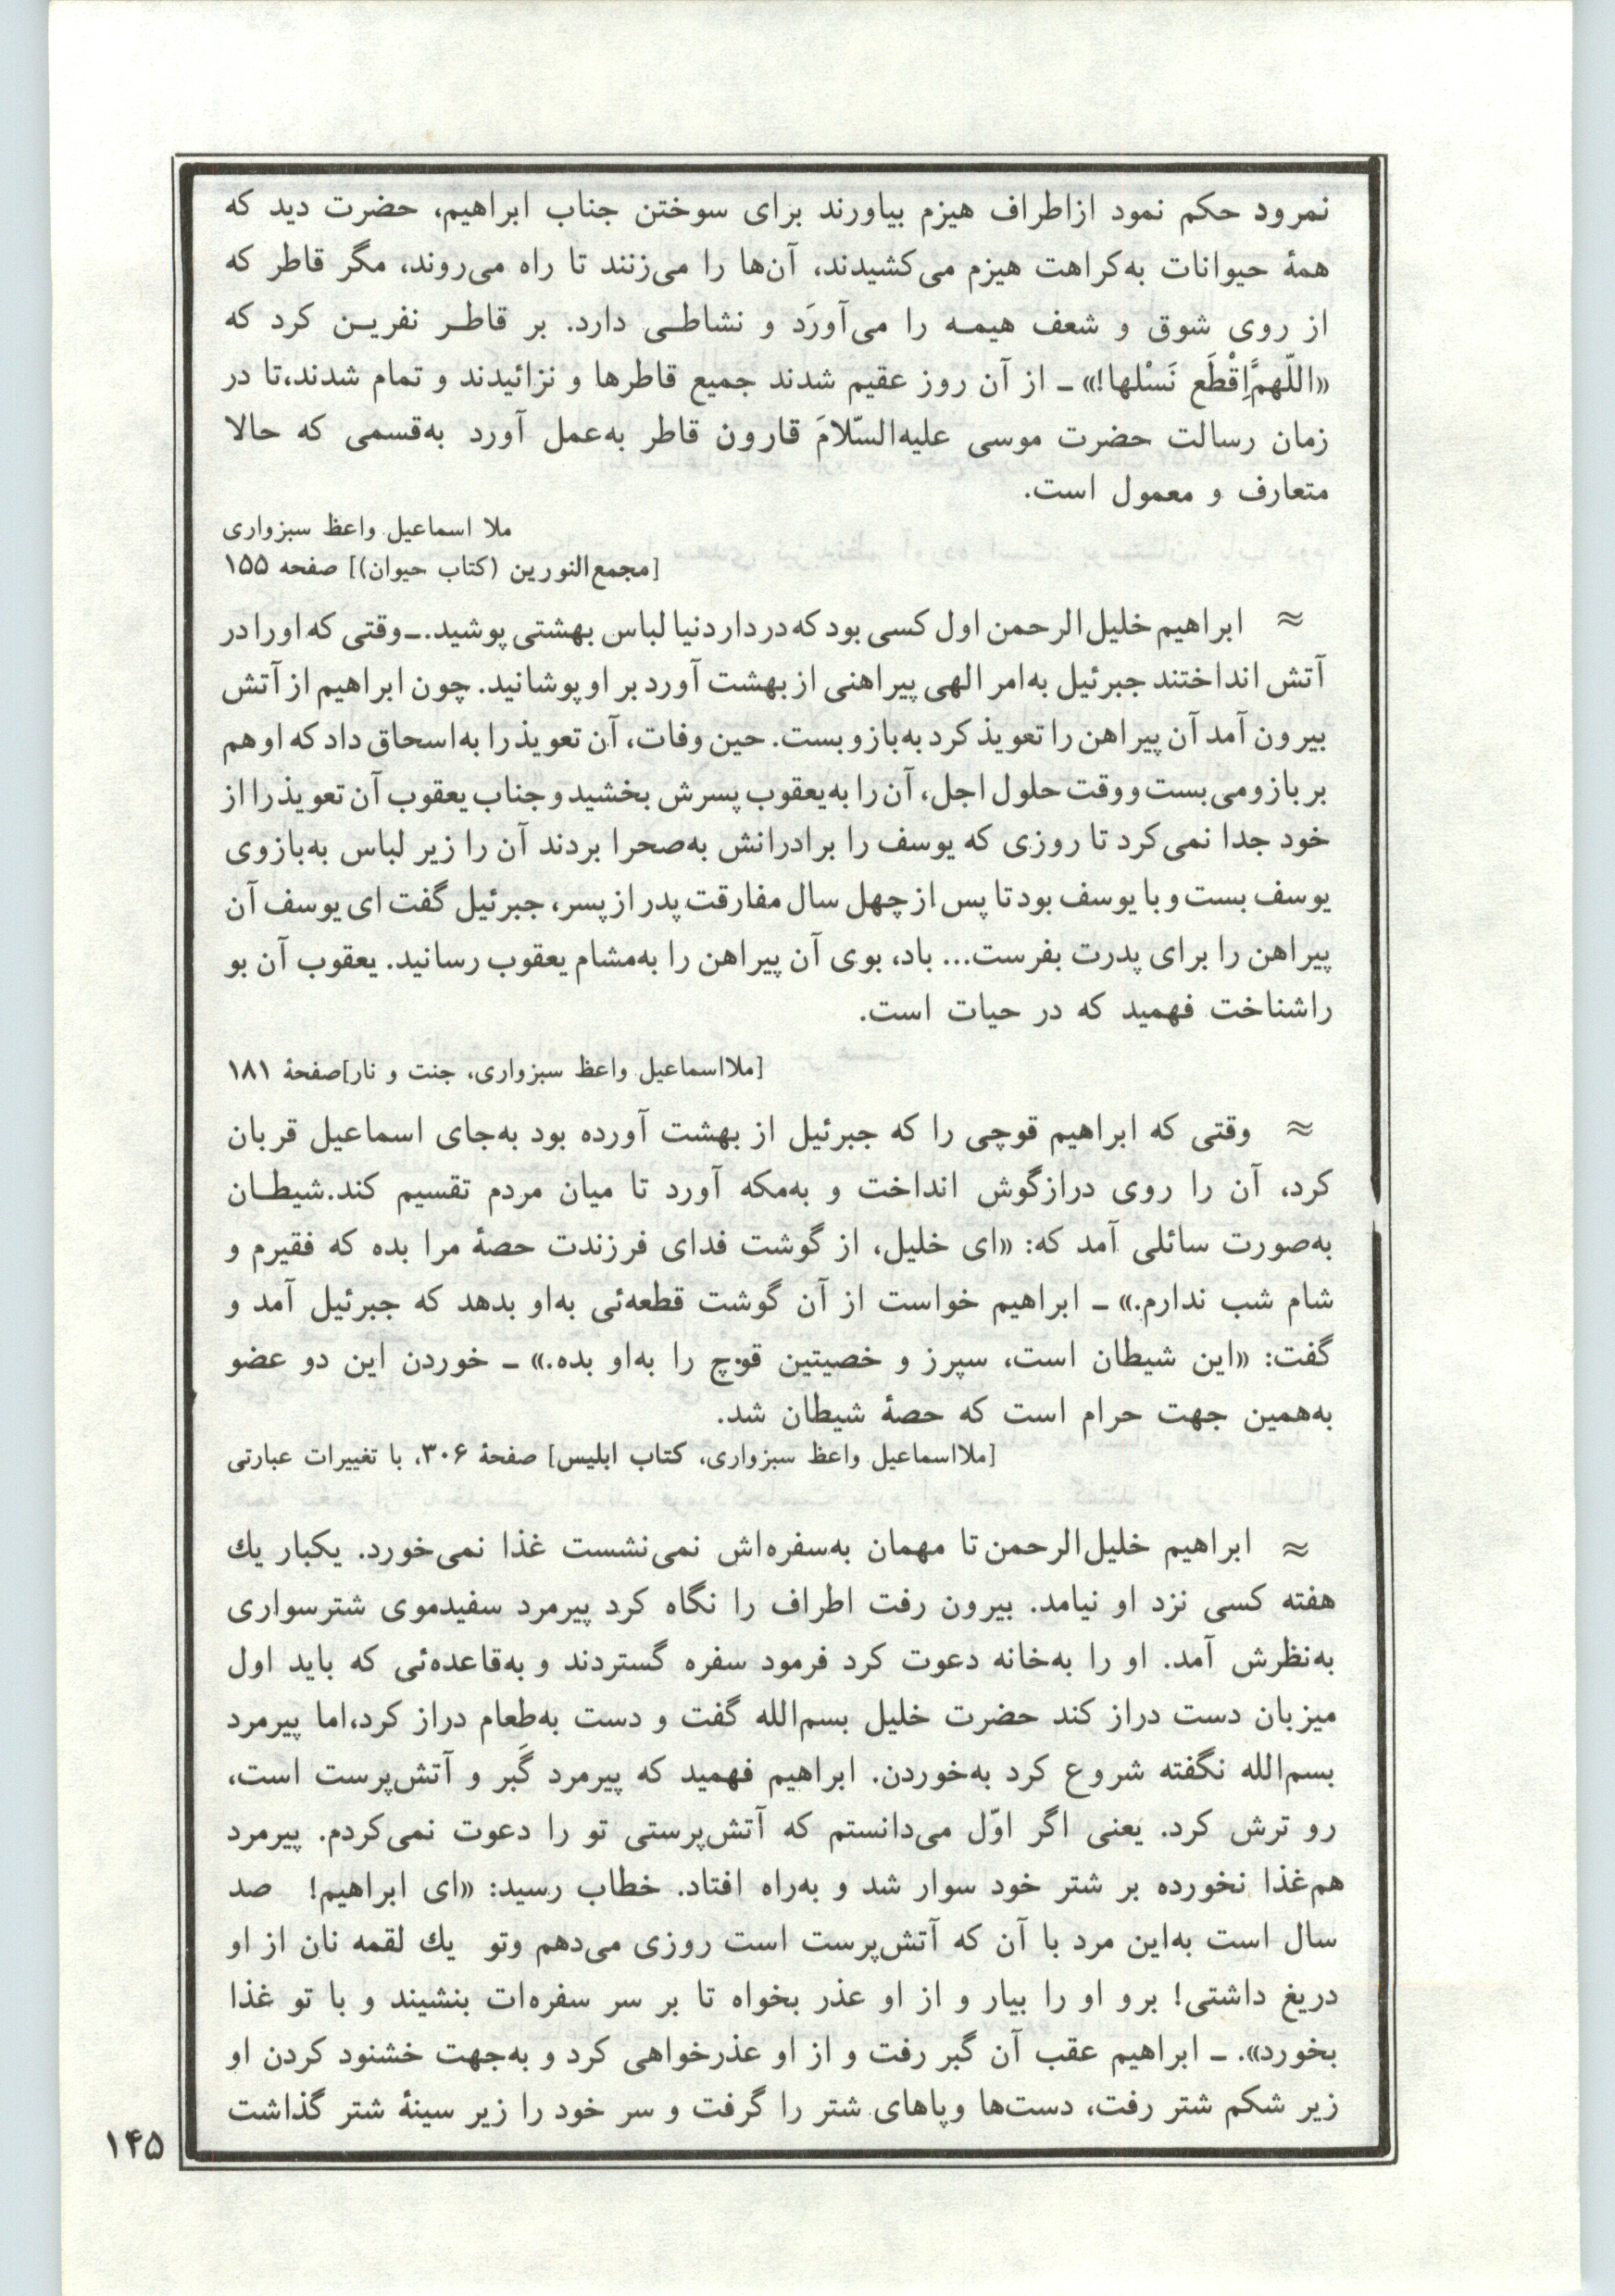 نمرود حکم نمود ازاطراف هیزم بیاورند برای سوختن جناب ابراهیم، حضرت دید که
همهٔ حیوانات به‌کراهت هیزم می‌کشیدند، آن‌ها را می‌زنند تا راه می‌روند، مگر قاطر که
از روی شوق و شعف هیمـه را می‌آورَد و نشاطـی دارد. بر قاطـر نفریـن کرد که
«اللّهمَّ‌اِقْطَع نَسْلها!» ـ از آن روز عقیم شدند جمیع قاطرها و نزائیدند و تمام شدند،تا در
زمان رسالت حضرت موسی علیه‌السّلامَ قارون قاطر به‌عمل آورد به‌قسمی که حالا
متعارف و معمول است.
ملا اسماعیل واعظ سبزواری
[مجمع‌النورین (کتاب حیوان)] صفحه ۱۵۵
≈ ابراهیم خلیل‌الرحمن اول کسی بود که در دار دنیا لباس بهشتی پوشید.ـ وقتی که اورا در
آتش انداختند جبرئیل به‌امر الهی پیراهنی از بهشت آورد بر او پوشانید. چون ابراهیم از آتش
بیرون آمد آن پیراهن را تعویذ کرد به‌بازو بست. حین وفات، آن تعویذ را به‌اسحاق داد که او هم
بر بازو می‌بست و وقت حلول اجل، آن را به‌یعقوب پسرش بخشید و جناب یعقوب آن تعویذ را از
خود جدا نمی‌کرد تا روزی که یوسف را برادرانش به‌صحرا بردند آن را زیر لباس به‌بازوی
یوسف بست و با یوسف بود تا پس از چهل سال مفارقت پدر از پسر، جبرئیل گفت ای یوسف آن
پیراهن را برای پدرت بفرست... باد، بوی آن پیراهن را به‌مشام یعقوب رسانید. یعقوب آن بو
راشناخت فهمید که در حیات است.
[ملااسماعیل واعظ سبزواری، جنت و نار]صفحهٔ ۱۸۱
≈ وقتی که ابراهیم قوچی را که جبرئیل از بهشت آورده بود به‌جای اسماعیل قربان
کرد، آن را روی درازگوش انداخت و به‌مکه آورد تا میان مردم تقسیم کند.شیطـان
به‌صورت سائلی آمد که: «ای خلیل، از گوشت فدای فرزندت حصهٔ مرا بده که فقیرم و
شام شب ندارم.» ـ ابراهیم خواست از آن گوشت قطعه‌ئی به‌او بدهد که جبرئیل آمد و
گفت: «این شیطان است، سپرز و خصیتین قوچ را به‌او بده.» ـ خوردن این دو عضو
به‌همین جهت حرام است که حصهٔ شیطان شد.
[ملااسماعیل واعظ سبزواری، کتاب ابلیس] صفحهٔ ۳۰۶، با تغییرات عبارتی
≈ ابراهیم خلیل‌الرحمن تا مهمان به‌سفره‌اش نمی‌نشست غذا نمی‌خورد. یکبار یك
هفته کسی نزد او نیامد. بیرون رفت اطراف را نگاه کرد پیرمرد سفیدموی شترسواری
به‌نظرش آمد. او را به‌خانه دعوت کرد فرمود سفره گستردند و به‌قاعده‌ئی که باید اول
میزبان دست دراز کند حضرت خلیل بسم‌الله گفت و دست به‌طعام دراز کرد،اما پیرمرد
بسم‌الله نگفته شروع کرد به‌خوردن. ابراهیم فهمید که پیرمرد گَبر و آتش‌پرست است،
رو ترش کرد. یعنی اگر اوّل می‌دانستم که آتش‌پرستی تو را دعوت نمی‌کردم. پیرمرد
هم‌غذا نخورده بر شتر خود سوار شد و به‌راه افتاد. خطاب رسید: «ای ابراهیم! صد
سال است به‌این مرد با آن که آتش‌پرست است روزی می‌دهم وتو یك لقمه نان از او
دریغ داشتی! برو او را بیار و از او عذر بخواه تا بر سر سفره‌ات بنشیند و با تو غذا
بخورد». ـ ابراهیم عقب آن گبر رفت و از او عذرخواهی کرد و به‌جهت خشنود کردن او
زیر شکم شتر رفت، دست‌ها وپاهای شتر را گرفت و سر خود را زیر سینهٔ شتر گذاشت
۱۴۵